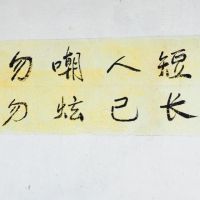 勿嘲人短
勿炫己长